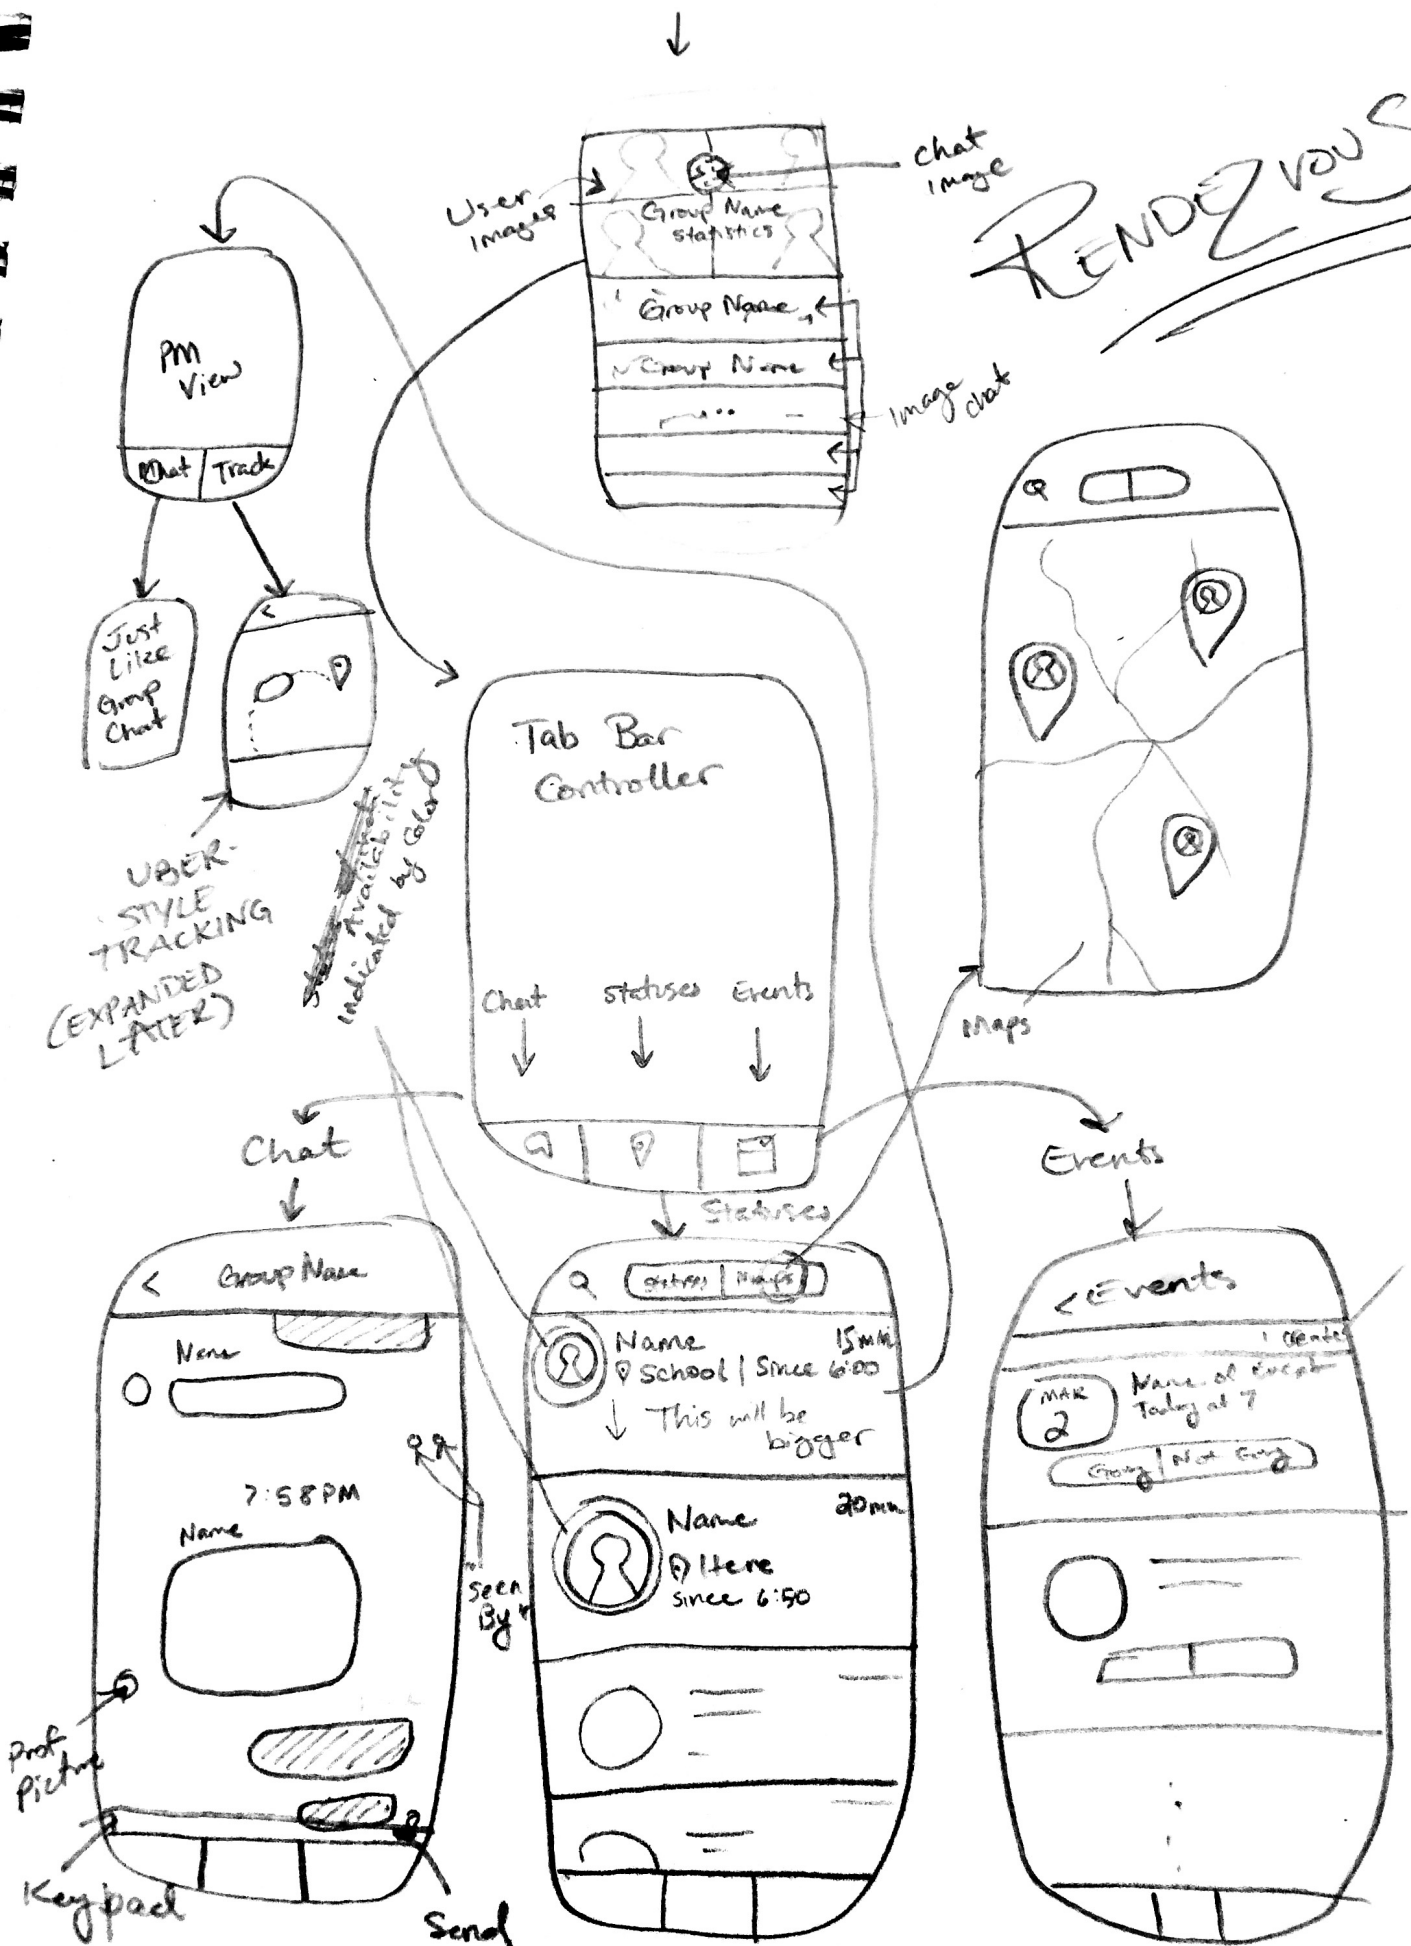 RENDEZVOUS
chat
image
User
images
Group Name
statistics
Group Name
Group Name
Image
chat
PM
View
Chat
Track
Just
Like
Group
Chat
UBER-
STYLE
TRACKING
(EXPANDED
LATER)
Availability
Indicated by Color
Tab Bar
Controller
Chat
Statuses
Events
Maps
Chat
Statuses
Events
< Group Name
Name
7:58PM
Name
Seen
By
Prof
Picture
Keypad
Send
Statuses | Maps
Name
15min
School | Since 6:00
This will be
bigger
Name
20min
Here
Since 6:50
< Events
MAR
2
Name of Event
Today at 7
Going | Not Going